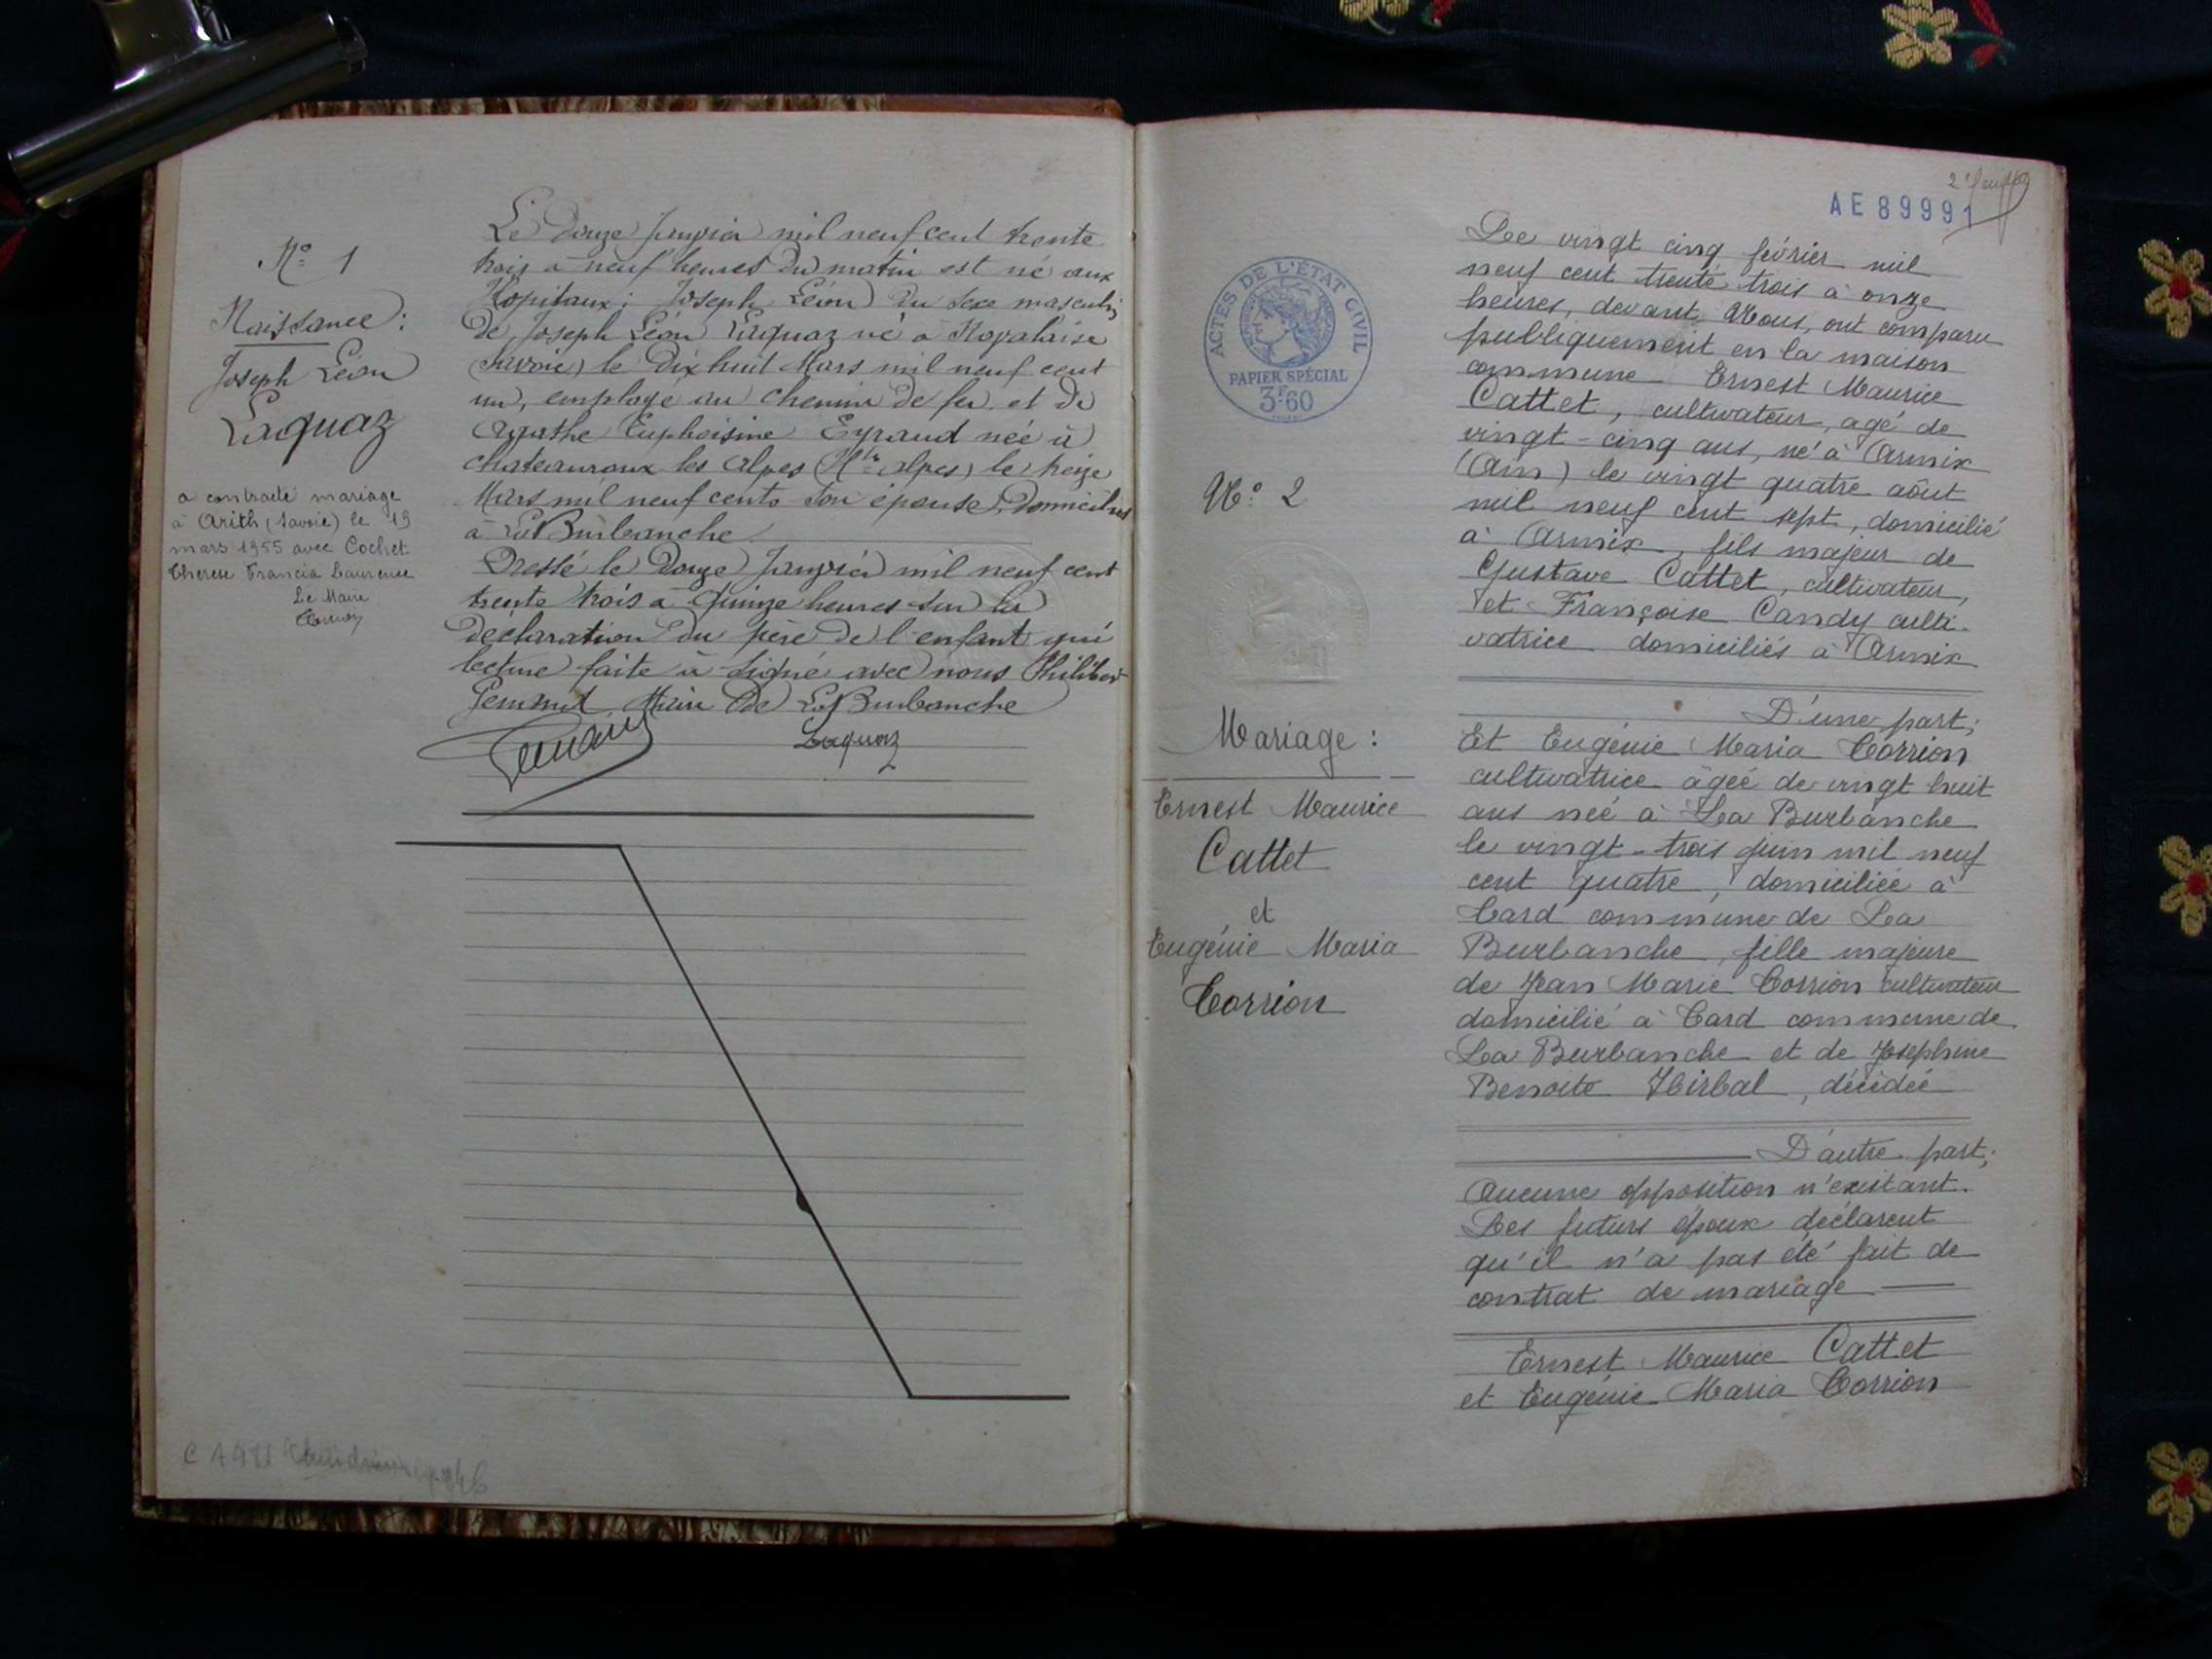 Nº 1
Naissance :
Joseph Léon
Laquaz
a contracté mariage
à Arith (Savoie) le 19
mars 1955 avec Cochet
Thérèse Francia Laurence
Le Maire
Le Douze Janvier mil neuf cent trente
trois à neuf heures du matin est né aux
Hopitaux ; Joseph Léon du sexe masculin
de Joseph Léon Laquaz né à Novalaise
(Savoie) le Dix huit Mars mil neuf cent
un, employé au chemin de fer et de
Agathe Euphoisine Eyraud née à
chateauroux les alpes (Htes alpes) le treize
Mars mil neuf cents son épouse, Domiciliés
à La Burbanche
Dressé le Douze Janvier mil neuf cent
trente trois à Quinze heures sur la
déclaration du père de l'enfant qui
lecture faite à signé avec nous Philibert
Maire De La Burbanche
Laquaz
AE 89991
ACTES DE L'ÉTAT CIVIL
PAPIER SPÉCIAL
3F60
Nº 2
Mariage :
Ernest Maurice
Cattet
et
Eugénie Maria
Corrion
Le vingt cinq février mil
neuf cent trente trois à onze
heures, devant Nous, ont comparu
publiquement en la maison
commune Ernest Maurice
Cattet, cultivateur, agé de
vingt-cinq ans, né à Armix
(Ain) le vingt quatre août
mil neuf cent sept, domicilié
à Armix, fils majeur de
Gustave Cattet, cultivateur,
et Françoise Candy culti-
vatrice domiciliés à Armix
D'une part ;
Et Eugénie Maria Corrion
cultivatrice âgée de vingt huit
ans née à La Burbanche
le vingt-trois juin mil neuf
cent quatre, domiciliée à
Card commune de La
Burbanche, fille majeure
de Jean Marie Corrion cultivateur
domicilié à Card commune de
La Burbanche et de Josephine
Benoite Hirbal, décédée
D'autre part ;
Aucune opposition n'existant.
Les futurs époux déclarent
qu'il n'a pas été fait de
contrat de mariage
Ernest Maurice Cattet
et Eugénie Maria Corrion